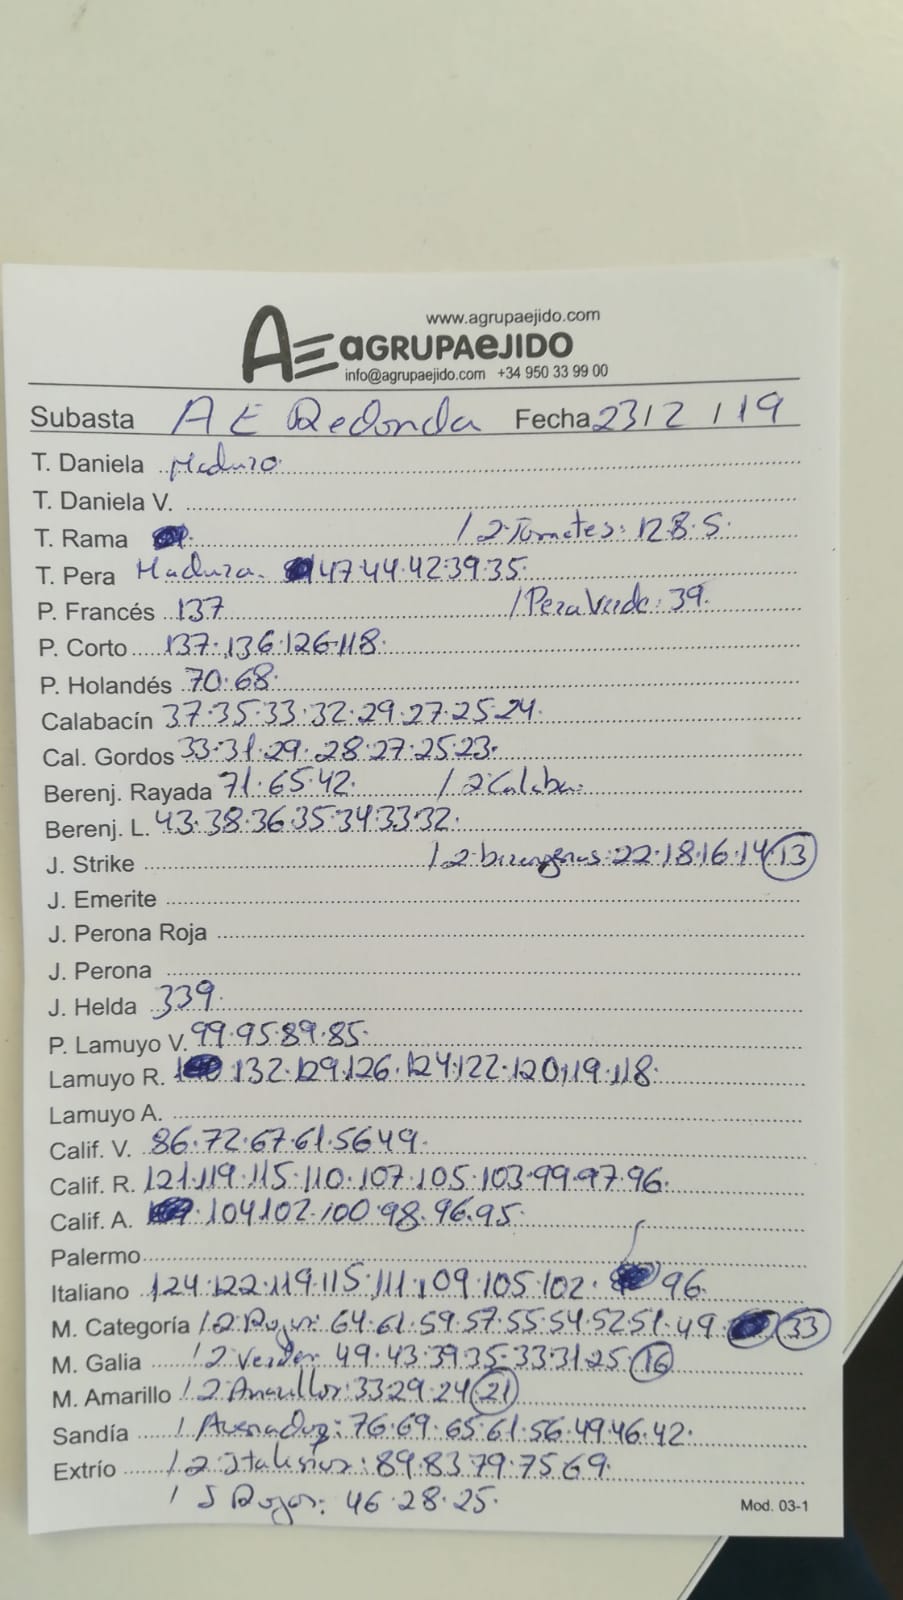 www.agrupaejido.com
AE AGRUPAEJIDO
info@agrupaejido.com +34 950 33 99 00
Subasta A E Redonda Fecha 23/2/19
T. Daniela Maduro
T. Daniela V.
T. Rama / 2 Tomates: 12.8.5.
T. Pera Madura. 47.44.42.39.35.
P. Francés 137 / Pera Verde: 39.
P. Corto 137.136.126.118.
P. Holandés 70.68.
Calabacín 37.35.33.32.29.27.25.24.
Cal. Gordos 33.31.29.28.27.25.23.
Berenj. Rayada 71.65.42. / 2 Calaba:
Berenj. L. 43.38.36.35.34.33.32.
J. Strike / 2 : 22.18.16.14 13
J. Emerite
J. Perona Roja
J. Perona
J. Helda 339.
P. Lamuyo V. 99.95.89.85.
Lamuyo R. 132.129.126.124.122.120.119.118.
Lamuyo A.
Calif. V. 86.72.67.61.56.49.
Calif. R. 121.119.115.110.107.105.103.99.97.96.
Calif. A. 104.102.100.98.96.95.
Palermo
Italiano 124.122.119.115.111.109.105.102. 96.
M. Categoría / 2 Rojos: 64.61.59.57.55.54.52.51.49. 33
M. Galia / 2 Verdes 49.43.39.35.33.31.25. 16
M. Amarillo / 2 Amarillos: 33.29.24 21
Sandía / : 76.69.65.61.56.49.46.42.
Extrío / 2 Italianos: 89.83.79.75.69.
/ S Rojos: 46.28.25.
Mod. 03-1